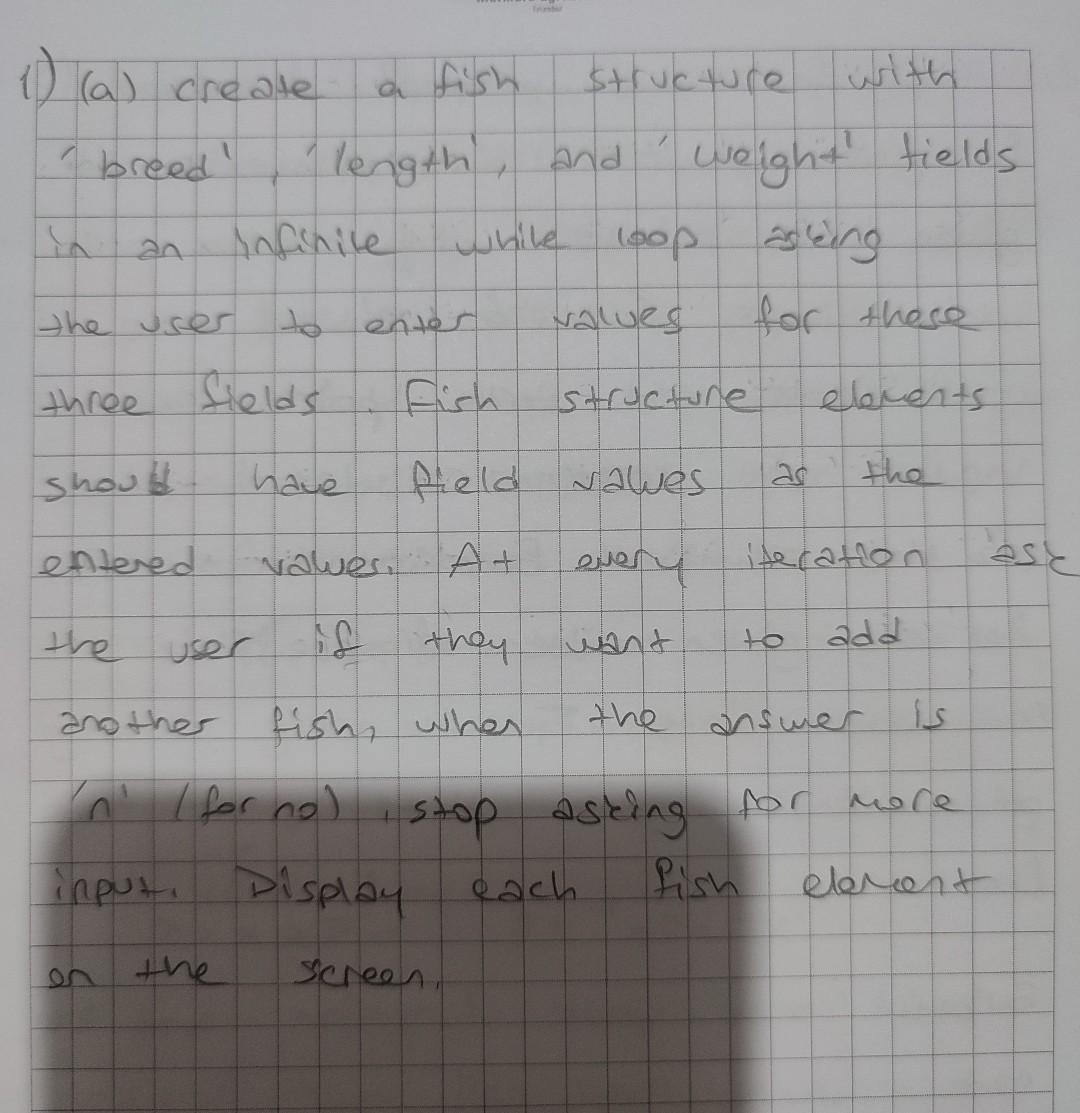 1) (a) create a fish structure with
'breed', 'length', and 'weight' fields
in an infinite while loop asking
the user to enter values for these
three fields. Fish structure elements
should have field values as the
entered values. At every iteration ask
the user if they want to add
another fish, when the answer is
'n' (for no), stop asking for more
input. Display each fish element
on the screen.